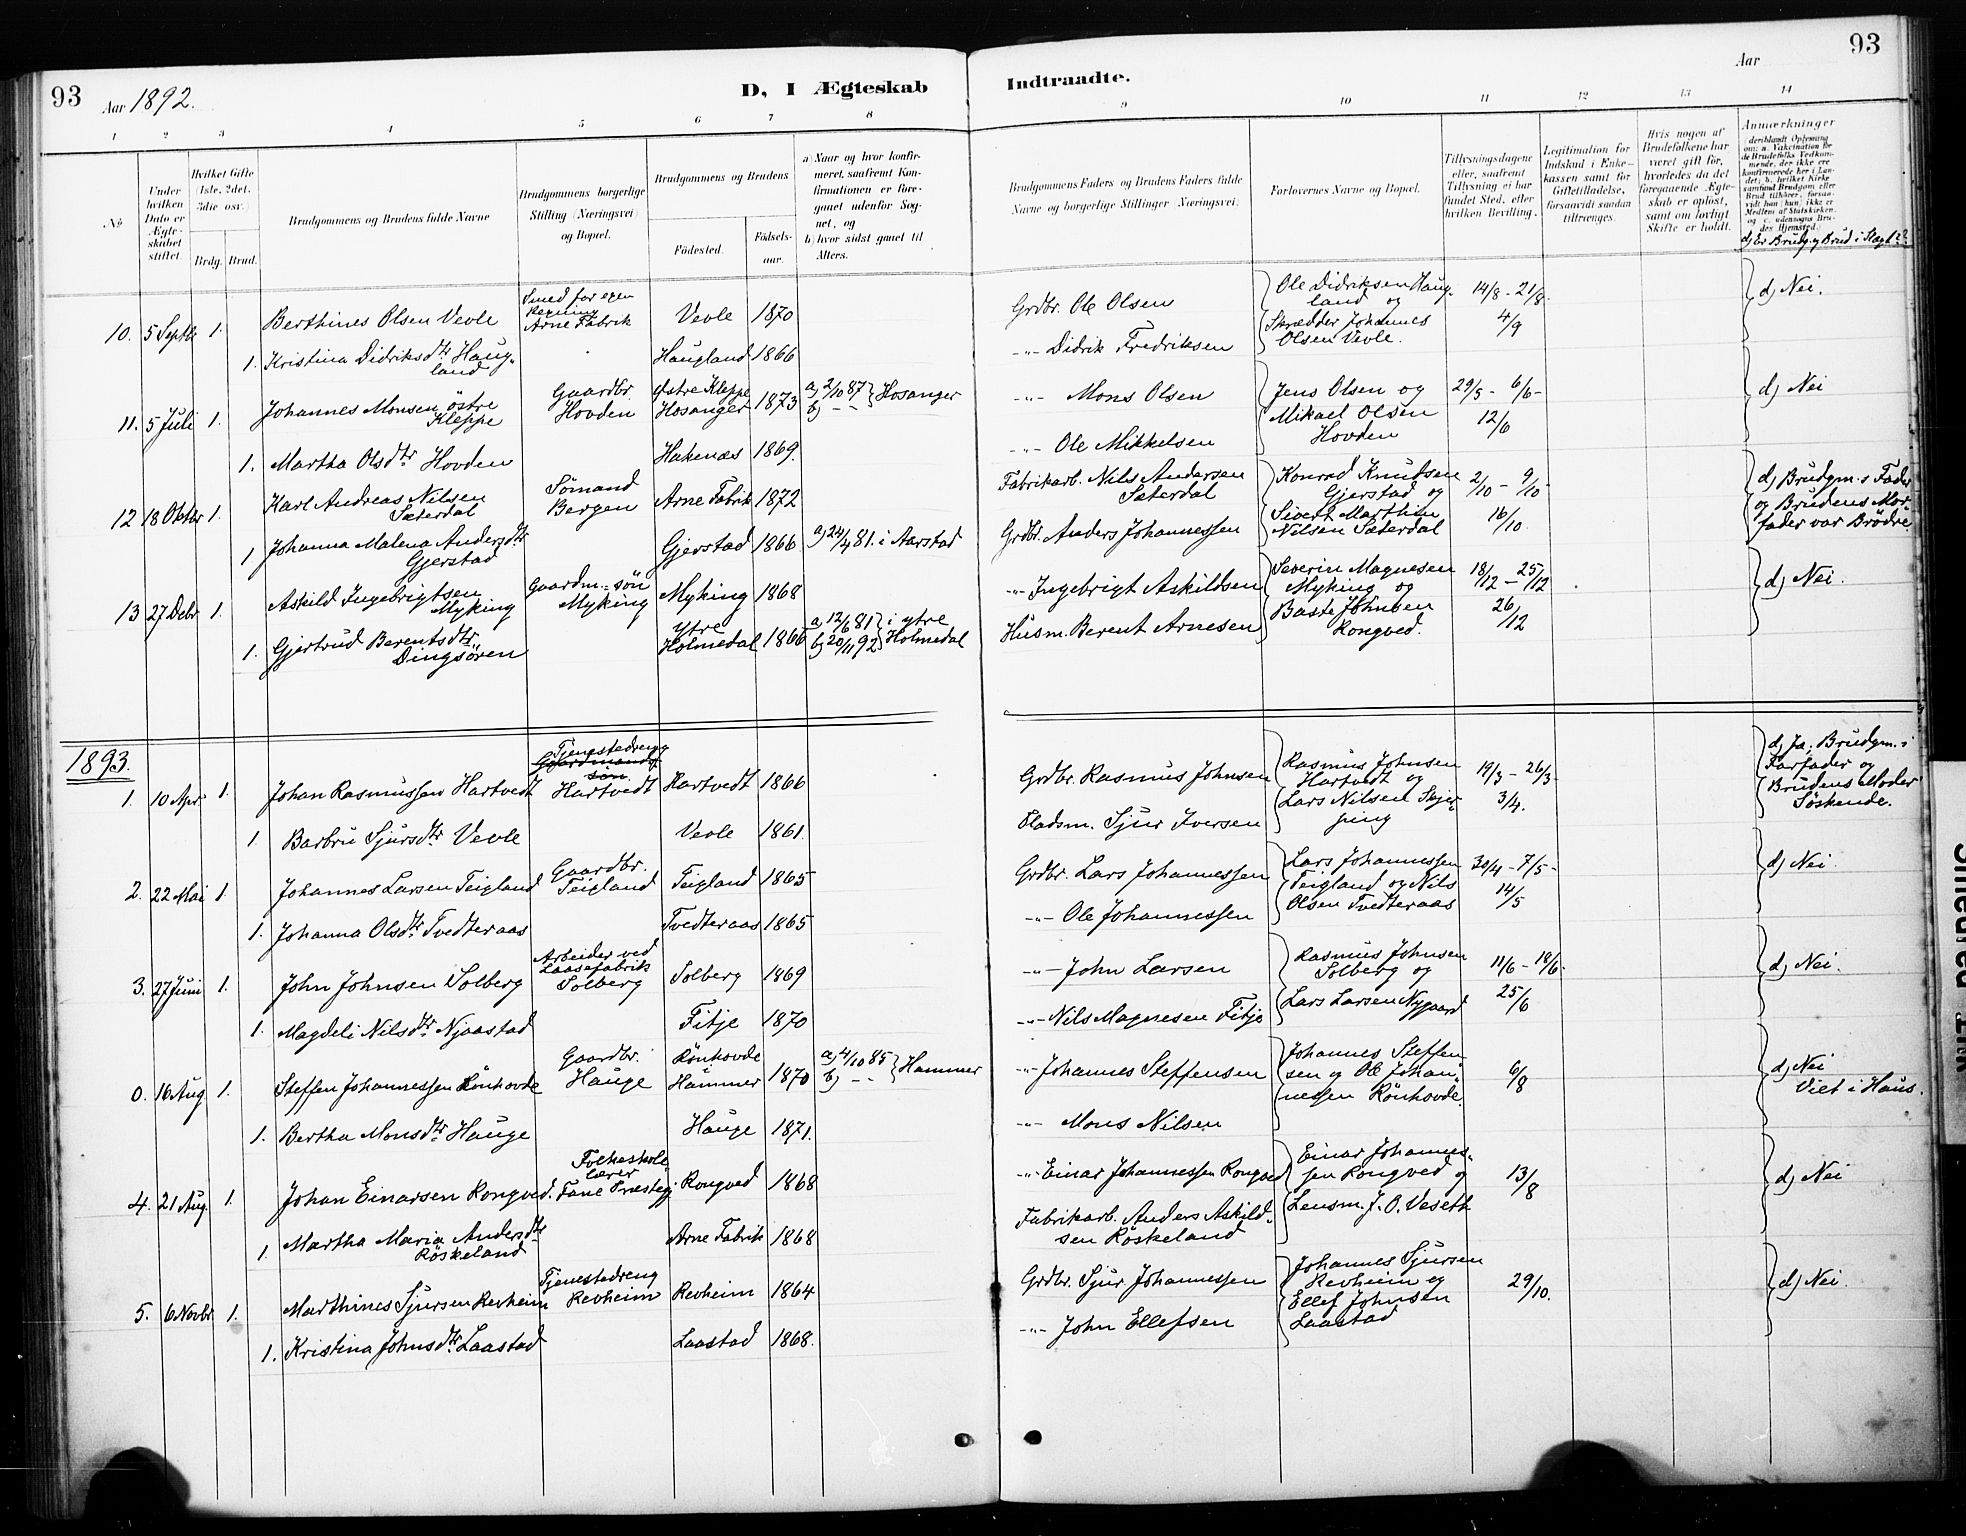 93
Aar 1892.
D, I Ægteskab
Indtraadte.
Aar
93
1
2
3
4
5
6
7
8
9
10
11
12
13
14
No
Under hvilken Dato er Ægteskabet stiftet.
Hvilket Gifte (1ste, 2det, 3die osv.)
Brdg.
Brud.
Brudgommens og Brudens fulde Navne
Brudgommens borgerlige Stilling (Næringsvei) og Bopæl.
Brudgommens og Brudens
Fødested.
Fødsels-aar.
a) Naar og hvor konfirmeret, saafremt Konfirmationen er foregaaet udenfor Sognet, og
b) hvor sidst gaaet til Alters.
Brudgommens Faders og Brudens Faders fulde Navne og borgerlige Stillinger (Næringsvei)
Forlovernes Navne og Bopæl.
Tillysningsdagene eller, saafremt Tillysning ei har fundet Sted, efter hvilken Bevilling.
Legitimation for Indskud i Enkekassen samt for Giftetilladelse, forsaavidt saadan tiltrænges.
Hvis nogen af Brudefolkene har været gift før, hvorledes da det foregaaende Ægteskab er opløst, samt om lovligt Skifte er holdt.
Anmærkninger
(deriblandt Oplysning om: a. Vakcination for de Brudefolks Vedkommende, der ikke ere konfirmerede her i Landet; b. hvilket Kirkesamfund Brudgom eller Brud tilhører, forsaavidt han (hun) ikke er Medlem af Statskirken, og c. udensogns Brudes Hjemsted.)
d) Er Brudg. og Brud i Slægt??
10. 5 Septbr 1. Berthines Olsen Vevle Smed for egen Regning Arne Fabrik Vevle 1870 Grdbr. Ole Olsen Ole Didriksen Haugland og Skrædder Johannes Olsen Vevle. 14/8 - 21/8 - 4/9 d) Nei.
1. Kristina Didriksdtr Haugland Haugland 1866 -"- Didrik Fredriksen
11. 5 Juli 1. Johannes Monsen östre Kleppe Gaardbr. Hovden Østre Kleppe Hosanger 1873 a) 2/10 87 b) - - Hosanger -"- Mons Olsen Jens Olsen og Mikael Olsen Hovden 29/5 - 6/6 - 12/6 d) Nei
1. Martha Olsdtr Hovden Hakenæs 1869. -"- Ole Mikkelsen
12 18 Oktbr 1. Karl Andreas Nilsen Sæterdal Sömand Bergen Arne Fabrik 1872 Fabrikarb. Nils Andersen Sæterdal Konrad Knudsen Gjerstad og Sivert Marthin Nilsen Sæterdal 2/10 - 9/10 - 16/10. d) Brudgm.s Fader og Brudens Morfader var Brödre.
1 Johanna Malena Andersdtr Gjerstad Gjerstad 1866 a) 24/4 81. i Aarstad Grdbr. Anders Johannessen
13 27 Debr 1. Askild Ingebrigtsen Myking Gaardm.-sön Myking Myking 1868 -"- Ingebrigt Askildsen Severin Magnesen Myking og Baste Johnsen Rongved. 18/12 - 25/12 26/12 d) Nei.
1. Gjertrud Berentsdtr Dingsören Ytre Holmedal 1866 a) 12/6 81 b) 20/11 92 i ytre Holmedal Husm. Berent Arnesen
1893.
1. 10 Apr 1. Johan Rasmussen Hartvedt Tjenestedreng Gaardmandssøn Hartvedt Hartvedt 1866 Grdbr. Rasmus Johnsen Rasmus Johnsen Hartvedt og Lars Nilsen Skjerping 19/3 - 26/3 - 3/4. d) Ja; Brudgm.s Farfader og Brudens Moder Söskende.
1. Barbru Sjursdtr Vevle Vevle 1861. Pladsm. Sjur Iversen
2. 22 Mai 1. Johannes Larsen Teigland Gaardbr. Teigland Teigland 1865 Grdbr. Lars Johannessen Lars Johannessen Teigland og Nils Olsen Tvedteraas 30/4 - 7/5 - 14/5 d) Nei.
1. Johanna Olsdtr Tvedteraas Tvedteraas 1865 -"- Ole Johannessen
3. 27 Juni 1. John Johnsen Solberg Arbeider ved Laasefabrik Solberg Solberg 1869 -"- John Larsen Rasmus Johnsen Solberg og Lars Larsen Nygaard 11/6 - 18/6 - 25/6 d) Nei.
1. Magdeli Nilsdtr Njaastad Fitje 1870 -"- Nils Magnesen Fitje
0. 16 Aug 1. Steffen Johannessen Rönhovde Gaardbr. Hauge Rönhovde Hammer 1870 a) 4/10 85 b) - - Hammer -"- Johannes Steffensen Johannes Steffensen og Ole Johannessen Rönhovde. 6/8 d) Nei Viet i Haus.
1. Bertha Monsdtr Hauge Hauge 1871. -"- Mons Nilsen
4. 21 Aug. 1. Johan Einarsen Rongved. Folkeskolelærer Fane Præstegj. Rongved 1868 -"- Einar Johannessen Rongved Einar Johannessen Rongved og Lensm. J. O. Veseth 13/8 d) Nei
1. Martha Maria Andersdtr Röskeland Arne Fabrik 1868 Fabrikarb. Anders Askildsen Röskeland
5. 6 Novbr. 1. Marthines Sjursen Revheim Tjenestedreng Revheim Revheim 1864 Grdbr. Sjur Johannessen Johannes Sjursen Revheim og Ellef Johnsen Laastad 29/10. d) Nei.
1. Kristina Johnsdtr Laastad Laastad 1868. -"- John Ellefsen
Smeared Ink